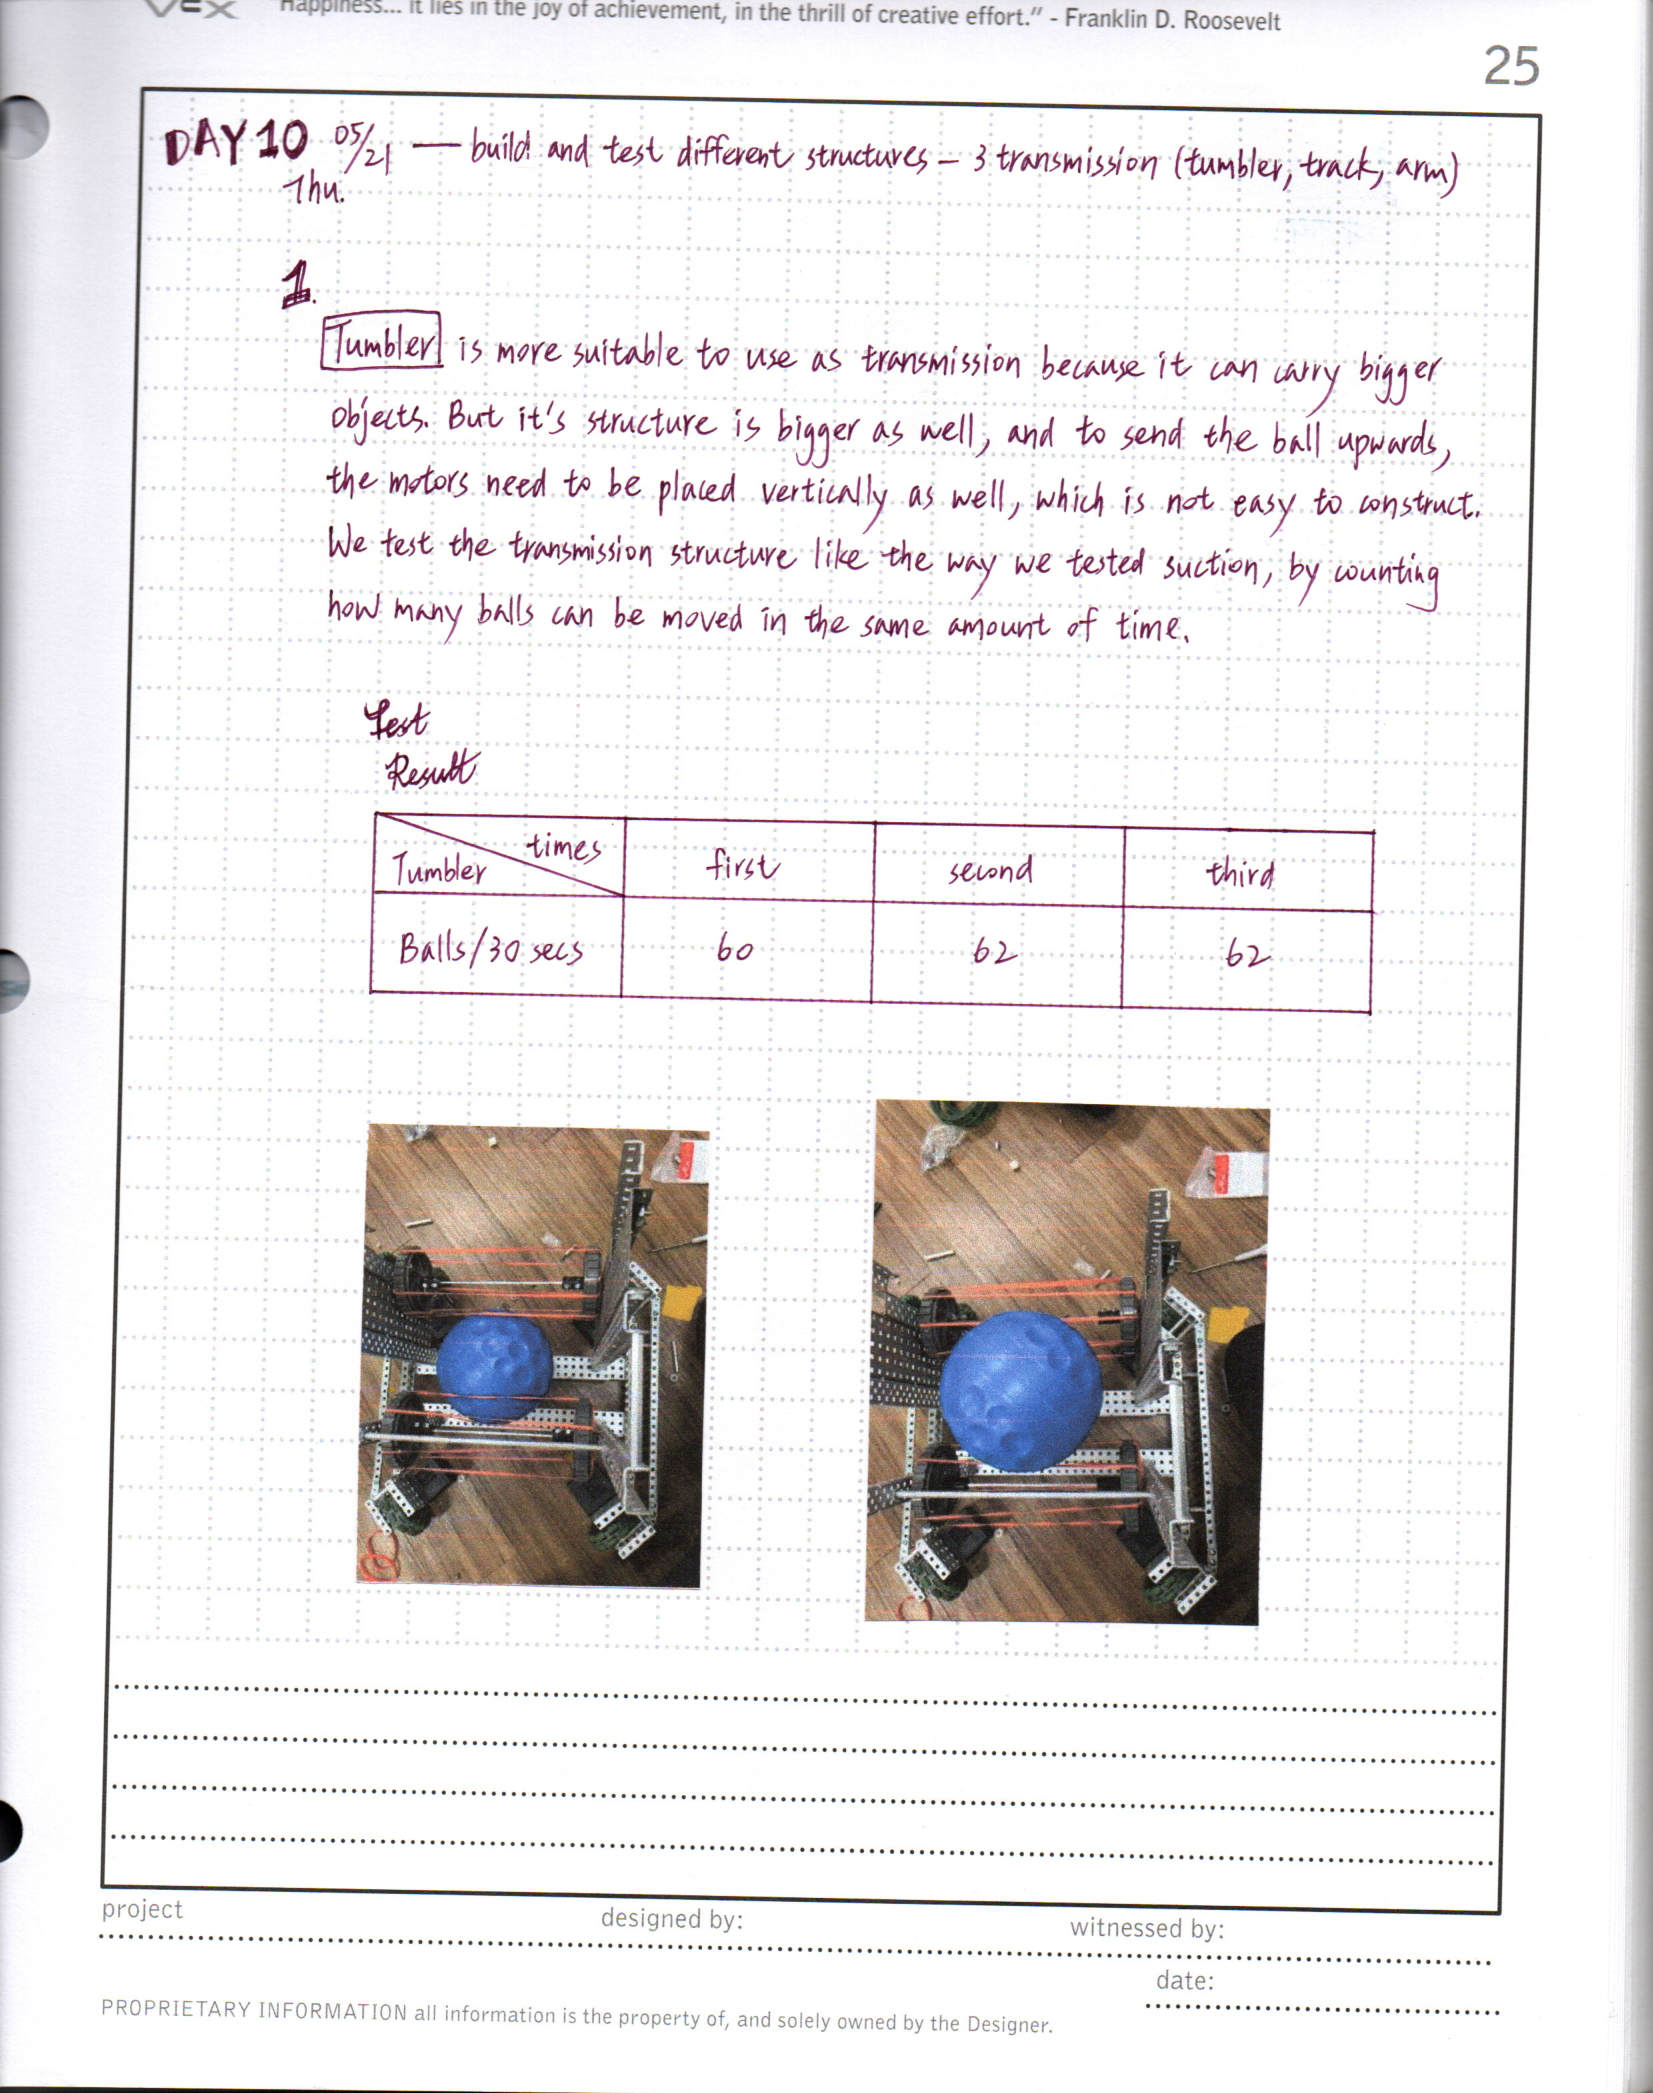 VEX "Happiness... it lies in the joy of achievement, in the thrill of creative effort." - Franklin D. Roosevelt
25
DAY 10 05/21 — build and test different structures – 3 transmission (tumbler, track, arm)
Thu.
1.
Tumbler is more suitable to use as transmission because it can carry bigger
objects. But it's structure is bigger as well, and to send the ball upwards,
the motors need to be placed vertically as well, which is not easy to construct.
We test the transmission structure like the way we tested suction, by counting
how many balls can be moved in the same amount of time.
Test
Result
times
Tumbler first second third
Balls/30 secs 60 62 62
project designed by: witnessed by:
date:
PROPRIETARY INFORMATION all information is the property of, and solely owned by the Designer.